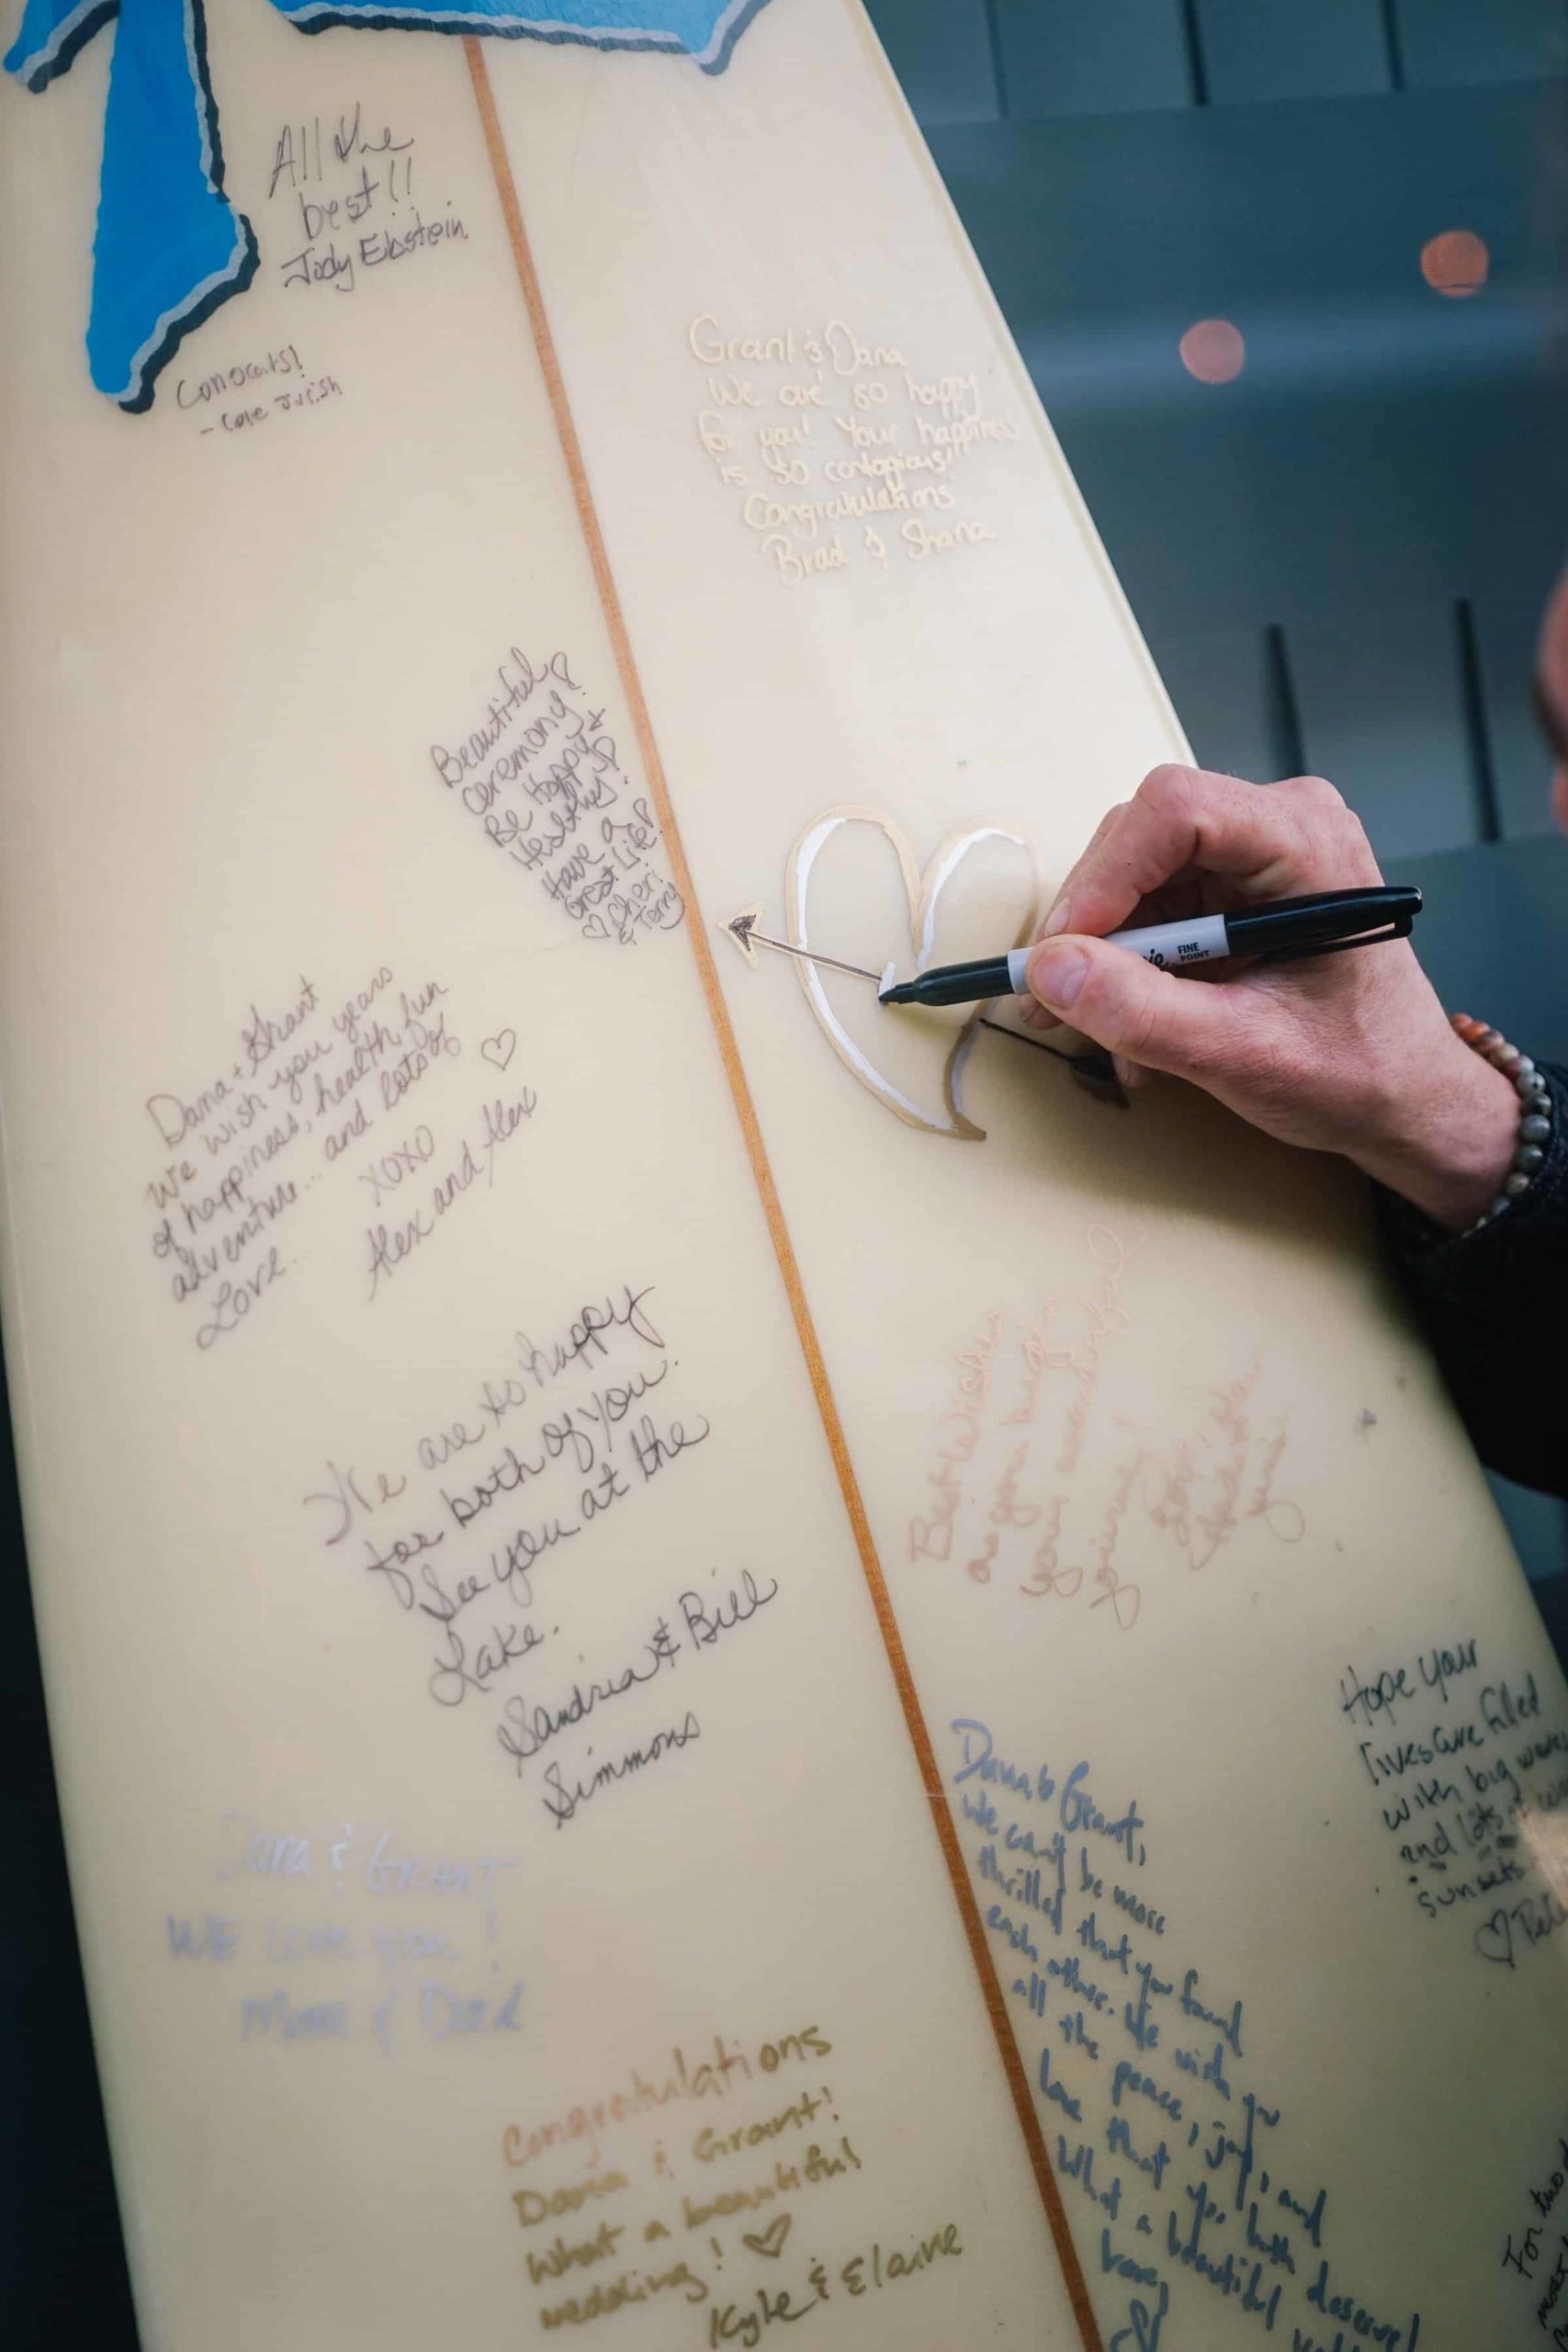 All the
best!!
Jody Ebstein
Congrats!
- Cole Jurish
Grant & Dana
We are so happy
for you! Your happiness
is so contagious!!
Congratulations
Brad & Shana
Beautiful
Ceremony!
Be Happy &
Healthy!
Have a
Great Life!
♡ Sheri
& Terry
FINE
POINT
Dana + Grant
We wish you years
of happiness, health, fun
adventure... and lots of
Love. XOXO ♡
Alex and Alex
We are so happy
for both of you.
See you at the
Lake.
Sandria & Bill
Simmons
Best Wishes
as you begin
your wonderful
journey!
Love,
Dana & Grant
WE LOVE you!
Mom & Dad
Hope your
lives are filled
with big
and lots of
sunsets
♡
Dana & Grant,
We can't be more
thrilled that you found
each other. We wish you
all the peace, joy, and
love that you both deserve!
What a beautiful
Congratulations
Dana & Grant!
What a beautiful
wedding! ♡
Kyle & Elaine
For two